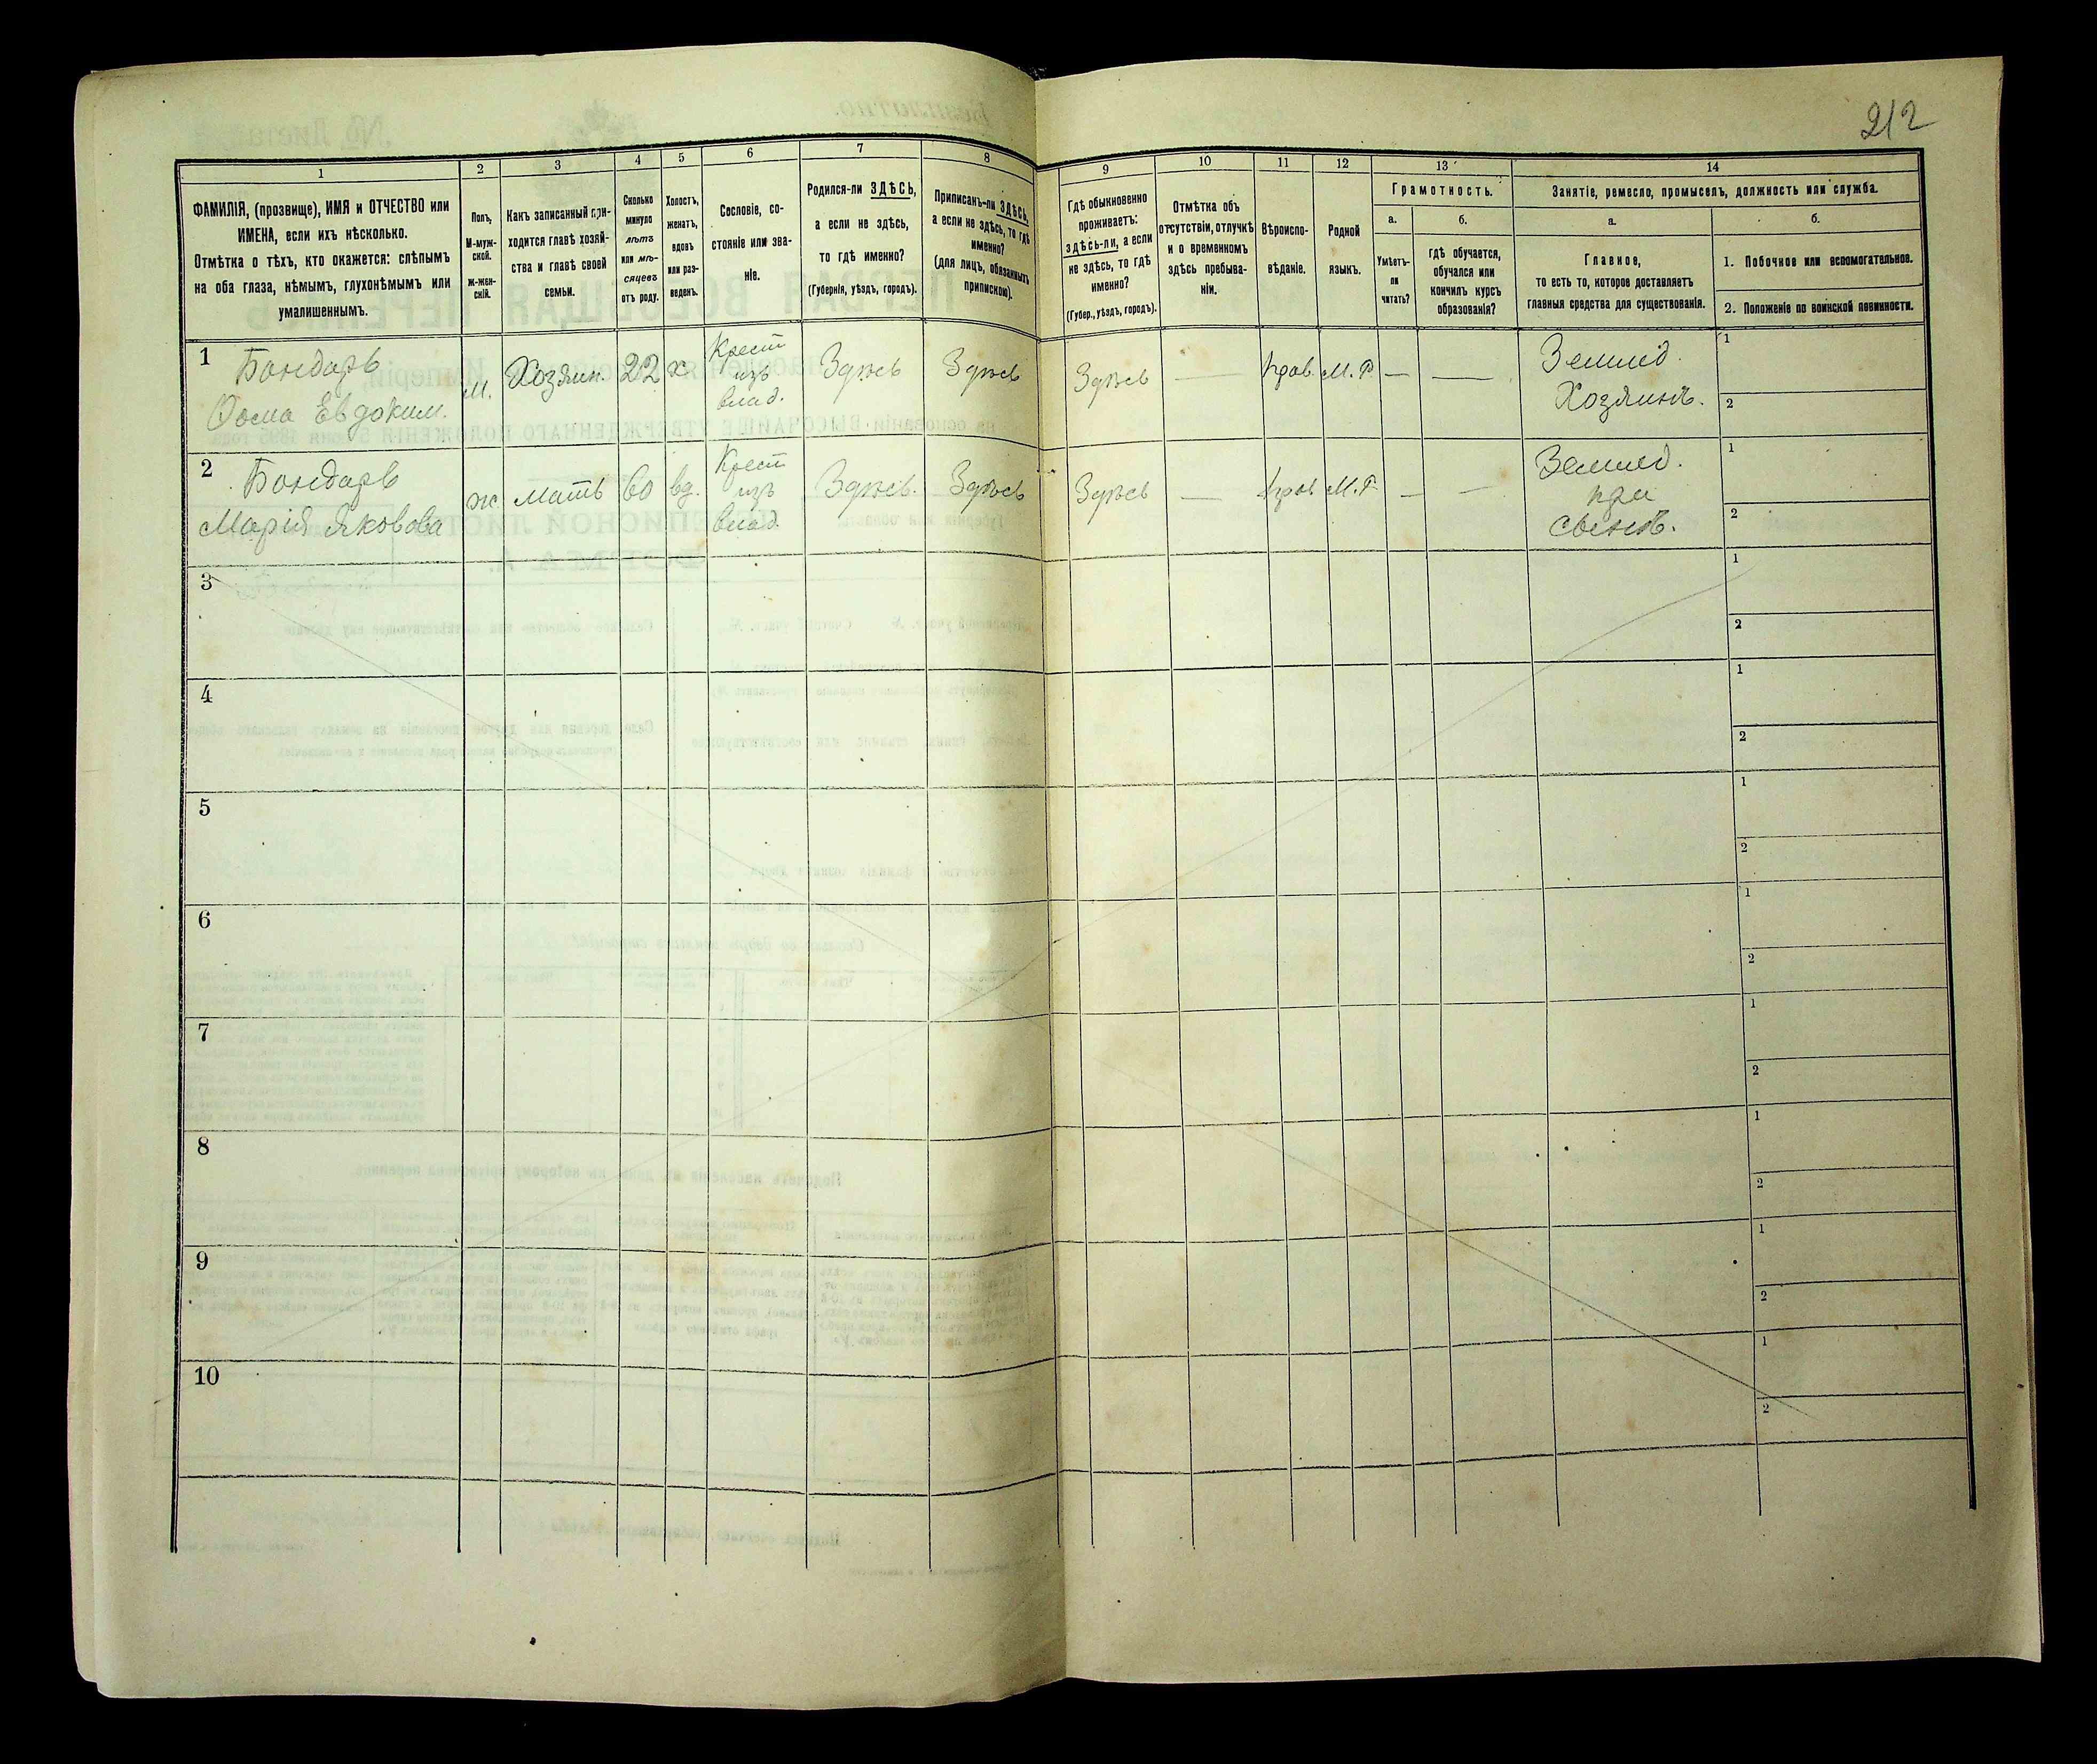 212
1
2
3
4
5
6
7
8
9
10
11
12
13
14
ФАМИЛІЯ, (прозвище), ИМЯ и ОТЧЕСТВО или
ИМЕНА, если ихъ нѣсколько.
Отмѣтка о тѣхъ, кто окажется: слѣпымъ
на оба глаза, нѣмымъ, глухонѣмымъ или
умалишеннымъ.
Полъ,
М-муж-
ской.
ж-жен-
скій.
Какъ записанный при-
ходится главѣ хозяй-
ства и главѣ своей
семьи.
Сколько
минуло
лѣтъ
или мѣ-
сяцевъ
отъ роду.
Холостъ,
женатъ,
вдовъ
или раз-
веденъ.
Сословіе, со-
стояніе или зва-
ніе.
Родился-ли ЗДѢСЬ,
а если не здѣсь,
то гдѣ именно?
(Губернія, уѣздъ, городъ).
Приписанъ-ли ЗДѢСЬ,
а если не здѣсь, то гдѣ
именно?
(для лицъ, обязанныхъ
припискою).
Гдѣ обыкновенно
проживаетъ:
здѣсь-ли, а если
не здѣсь, то гдѣ
именно?
(Губер., уѣздъ, городъ).
Отмѣтка объ
отсутствіи, отлучкѣ
и о временномъ
здѣсь пребыва-
ніи.
Вѣроиспо-
вѣданіе.
Родной
языкъ.
Грамотность.
а.
б.
Умѣетъ-
ли
читать?
гдѣ обучается,
обучался или
кончилъ курсъ
образованія?
Занятіе, ремесло, промыселъ, должность или служба.
а.
б.
Главное,
то есть то, которое доставляетъ
главныя средства для существованія.
1. Побочное или вспомогательное.
2. Положеніе по воинской повинности.
1
Бондарь
Ѳома Евдоким.
М.
Хозяин.
22
х
Крест
изъ
влад.
Здѣсь
Здѣсь
Здѣсь
—
прав.
М. Р.
—
—
Землед.
Хозяинъ.
1
2
2
Бондарь
Марія Яковова
ж
мать
60
вд.
Крест
изъ
влад.
Здѣсь.
Здѣсь
Здѣсь
—
прав
М. Р.
—
—
Землед.
при
сынѣ.
1
2
3
1
2
4
1
2
5
1
2
6
1
2
7
1
2
8
1
2
9
1
2
10
1
2